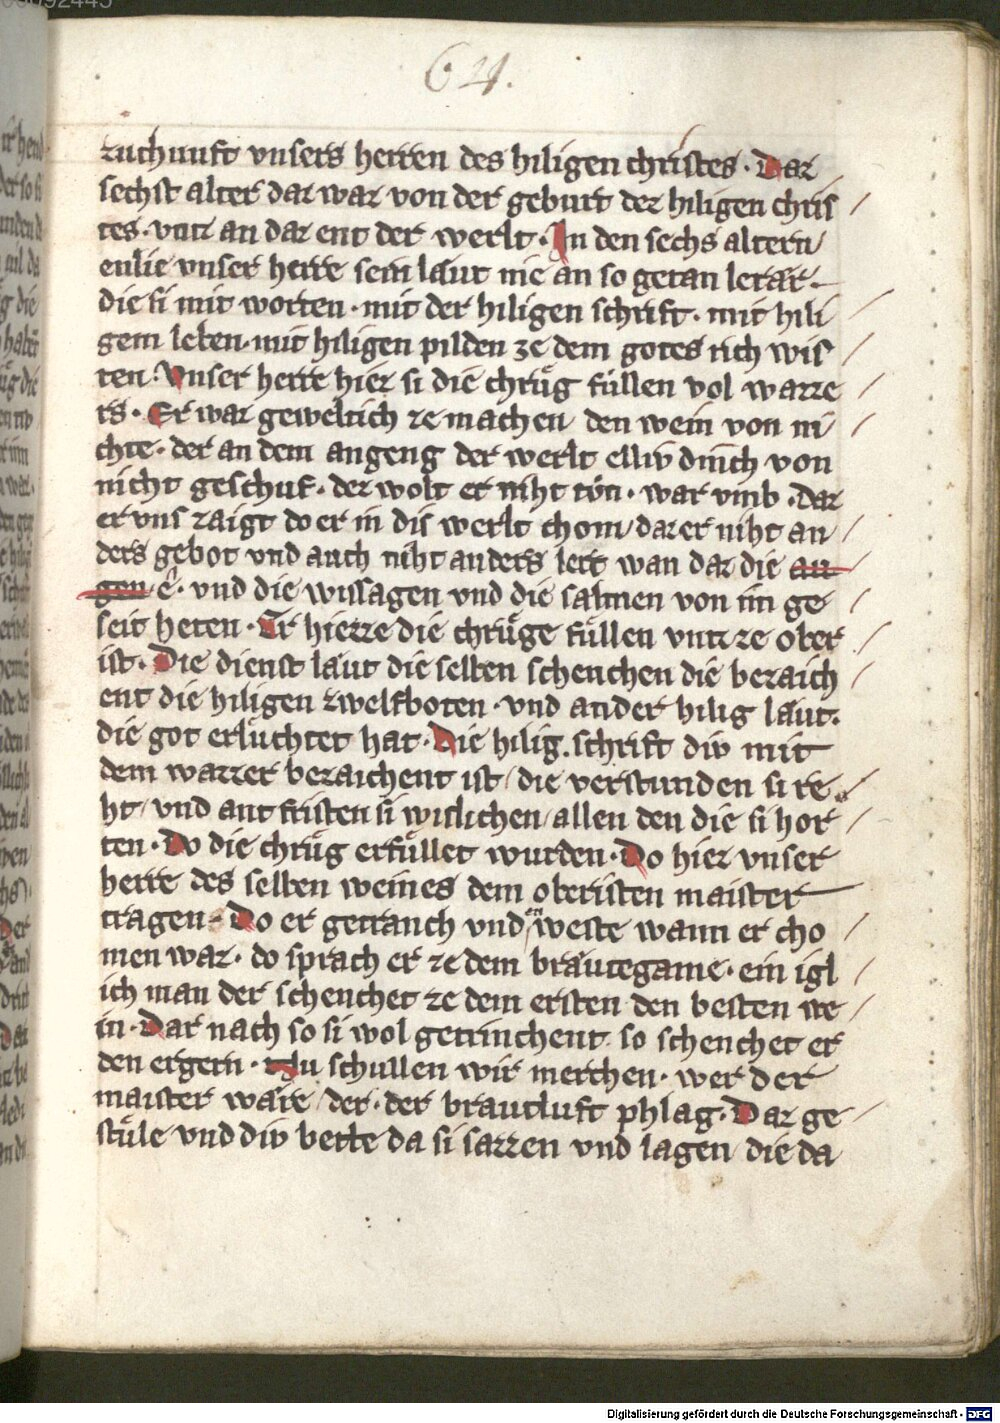 64.
zuchunft vnsers herren des hiligen christes · Daz
sechst alter daz waz von der geburt dez hiligen chris
tes · vntz an daz ent der werlt · In den sechs altern
enlie vnser herre sein laut nie an so getan lerär ·
die si mit worten · mit der hiligen schrift · mit hili
gem leben · mit hiligen pilden ze dem gotes rich wis
ten · Vnser herre hiez si die chrůg füllen vol wazze
rs · Er waz geweltich ze machen den wein von ni
chte · der an dem angeng der werlt elliv dinch von
nicht geschuf · dez wolt er niht tůn · war vmb · daz
er vns zaigt do er in dis werlt chom daz er niht an
ders gebot vnd auch niht anders lert wan daz die au
gen ê · vnd die wissagen vnd die salmen von im ge
seit heten · Er hiezze die chrůge füllen vntz ze ober
ist · Die dienst läut die selben schenchen die bezaich
ent die hiligen zwelfboten · vnd ander hilig läut ·
die got erlüchtet hat · Die hilig schrift div mit
dem wazzer bezaichent ist / die verstunden si re
ht / vnd ant fristen si wislichen / allen den die si hor
ten · Do die chrůg erfüllet wurden · Do hiez vnser
herre des selben weines dem obristen maister
tragen · Do er getranch vnd en weste wann er cho
men waz · do sprach er ze dem bräutegame · ein igl
ich man der schenchet ze dem ersten den besten we
in · Dar nach so si wol getrinchent so schenchet er
den ergern · Nu schullen wir merchen · wer der
maister wäre / der · der brautluft phlag · Daz ge
stüle vnd div bette da si sazzen vnd lagen / die da
Digitalisierung gefördert durch die Deutsche Forschungsgemeinschaft - DFG